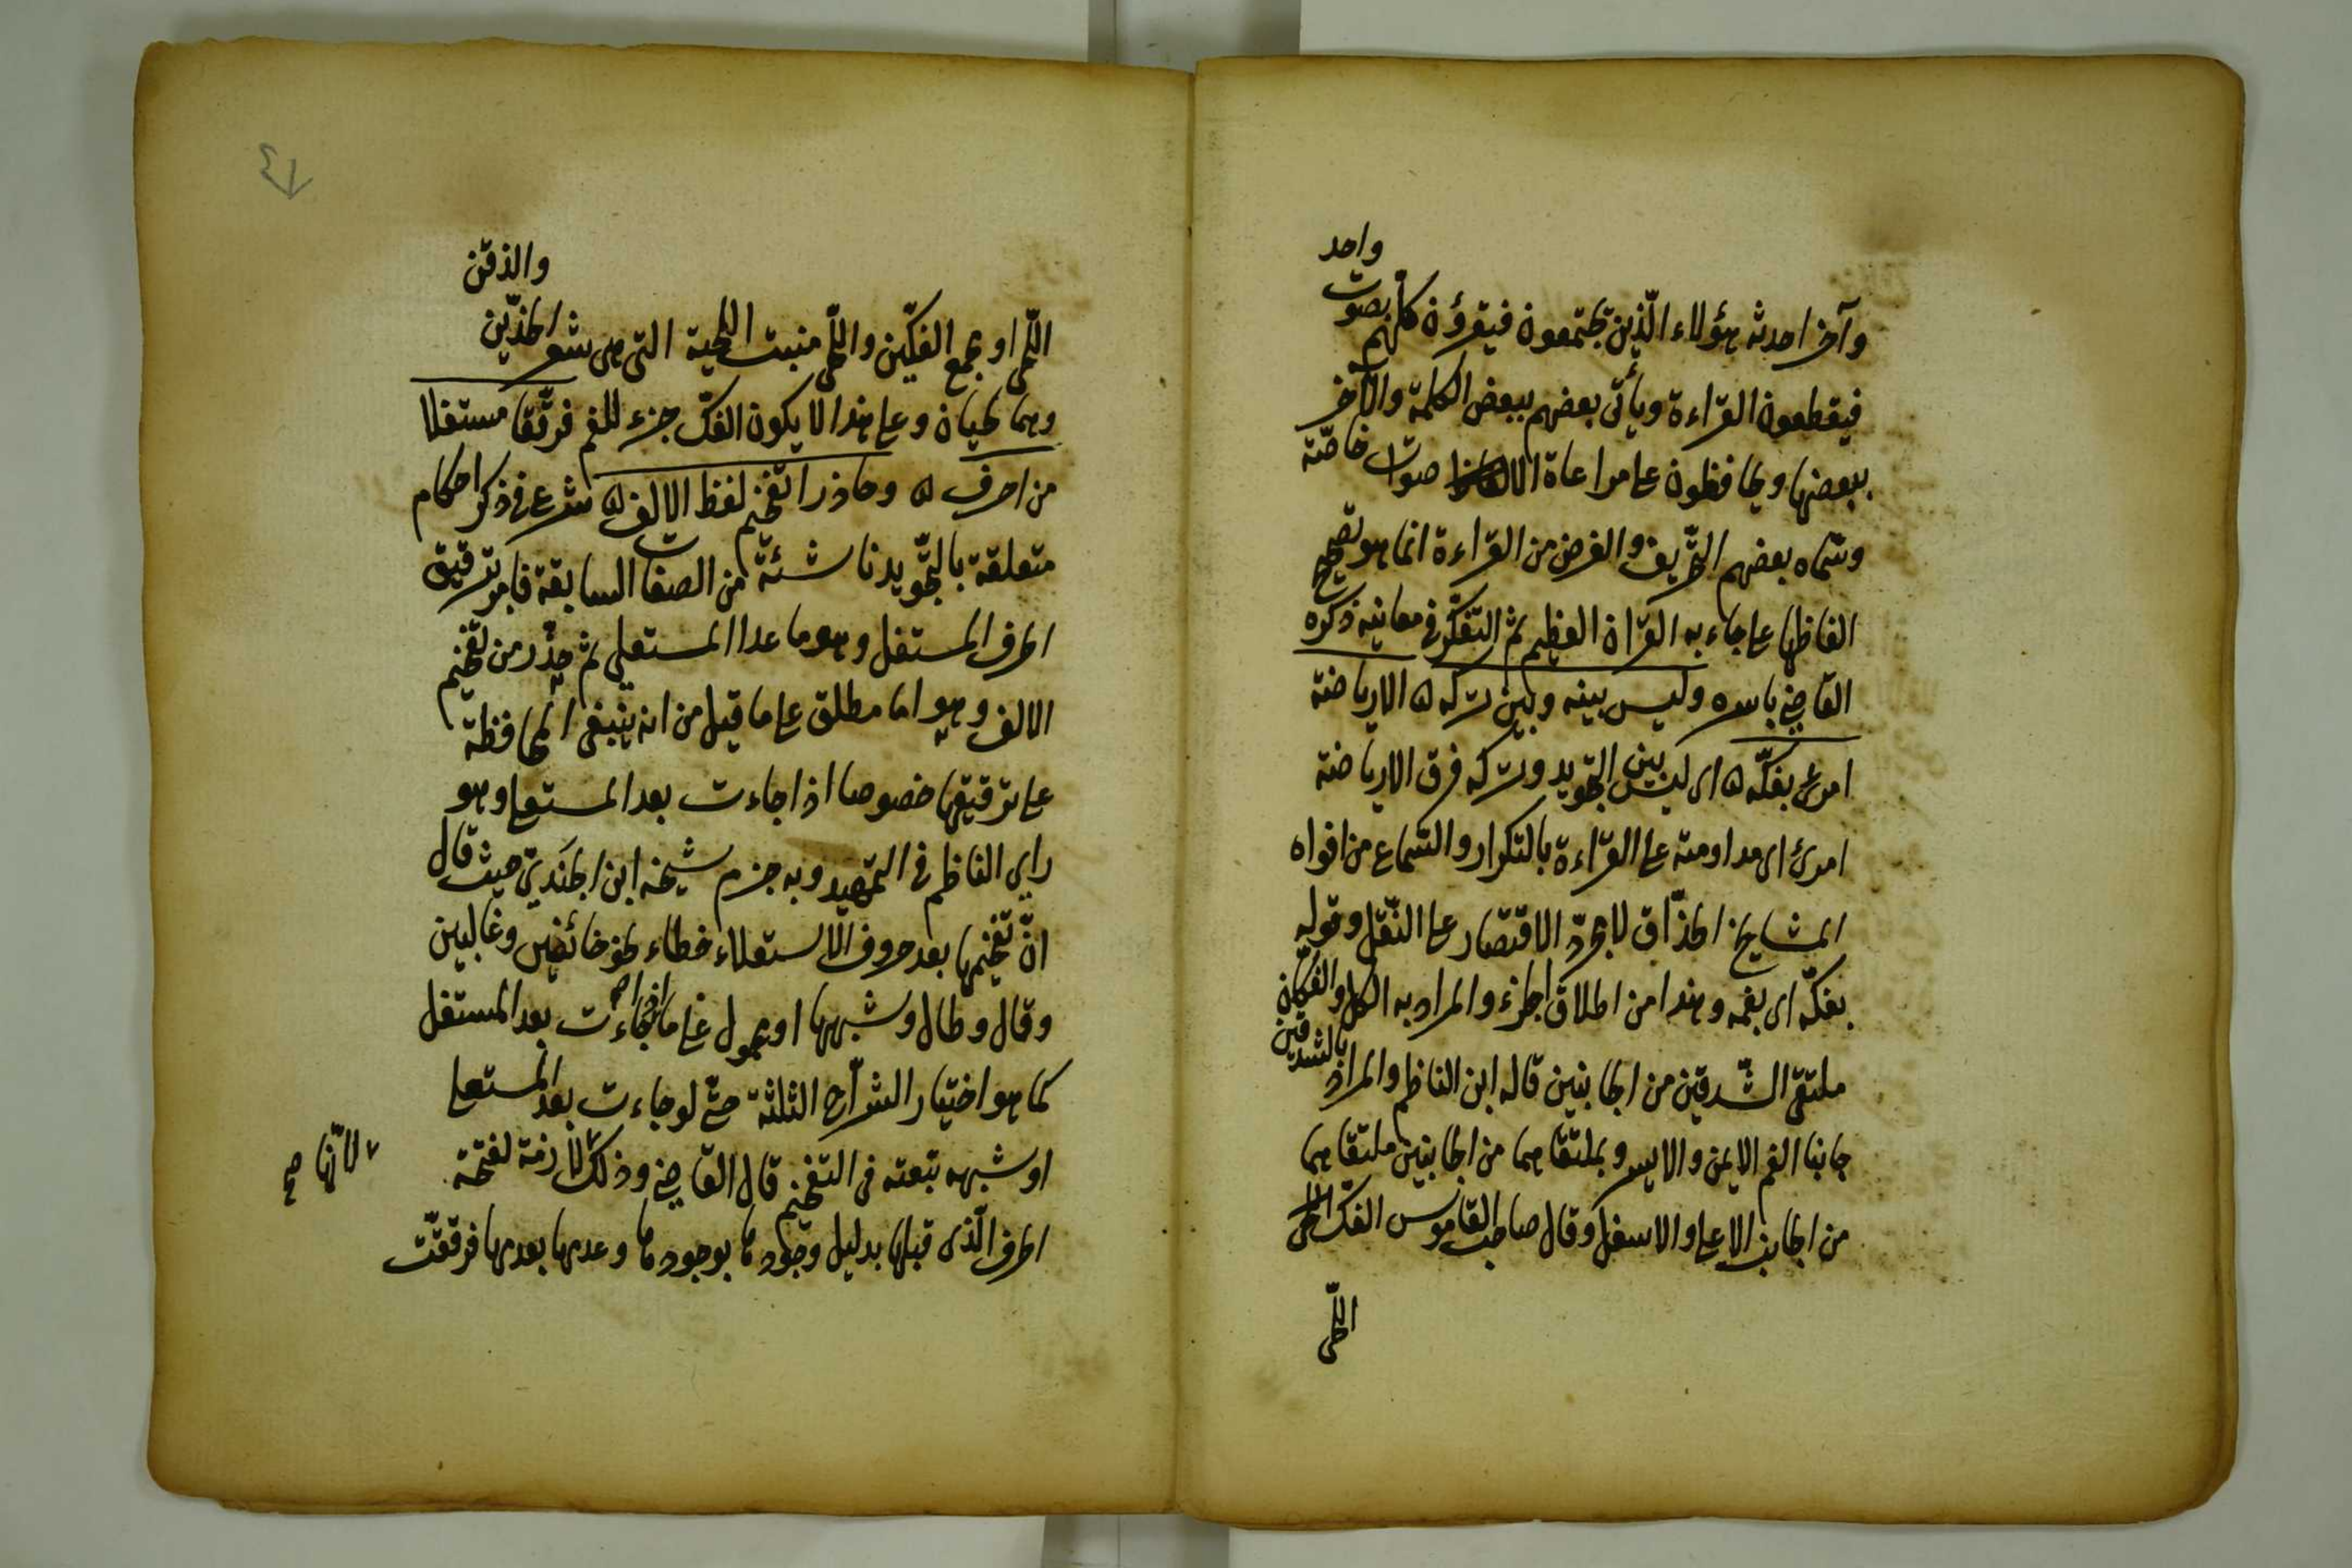 وآخر احدثه هؤلاء الّذين يجتمعون فيقرؤن كلّهم بصوت واحد
فيقطعون القراءة ويأتى بعضهم ببعض الكلمة والآخر
ببعضها ويحافظون على مراعاة الاصوات خاصّة
وسمّاه بعضهم التّحريف والغرض من القراءة انما هو تصحيح
الفاظها على ما جاء به القرآن العظيم ثم التفكّر فى معانيه ذكره
القاضى باسره وليس بينه وبين تركه ۵ الا رياضة
امرئ بفكّه ۵ اى ليس بين التجويد وتركه فرق الا رياضة
امرئ اى مداومته على القراءة بالتكرار والسّماع من افواه
المشايخ الحذّاق لا مجرّد الاقتصار على النّقل وقوله
بفكّه اى بفمه وهذا من اطلاق الجزء والمراد به الكل والفكّان
ملتقى الشّدقين من الجانبين قاله ابن الناظم والمراد بالشدقين
جانبا الفم الايمن والايسر وبملتقاهما من الجانبين ملتقاهما
من الجانب الاعلى والاسفل وقال صاحب القاموس الفكّ اللّحى
اللّحى
اللّحى او مجمع الفكّين واللّحى منبت اللّحية التى هى شعر الخدّين والذقن
وهما لحيان وعلى هذا لا يكون الفكّ جزء للفم فرقّقا مستفلا
من احرف ۵ وحاذرا تفخيم لفظ الالف ۵ شرع فى ذكر احكام
متعلقة بالتّجويد ناشئة من الصفات السابقة فامر بترقيق
الحرف المستفل وهو ما عدا المستعلى ثم حذّر من تفخيم
الالف وهو اما مطلق على ما قيل من انه ينبغى المحافظة
على ترقيقها خصوصا اذا جاءت بعد المستعلى وهو
راى الناظم فى التمهيد وبه جزم شيخه ابن الجندىّ حيث قال
انّ تفخيمها بعد حروف الاستعلاء خطاء نحو خائفين وغالبين
وقال وطال وشبهها او محمول على ما اذا جاءت بعد المستفل
كما هو اختيار الشرّاح الثلثة حتى لو جاءت بعد المستعلى
او شبهه تبعته فى التفخيم قال القاضى وذلك لازمة لفتحة
لانّها صح
الحرف الّذى قبلها بدليل وجودها بوجودها وعدمها بعدمها فرققت